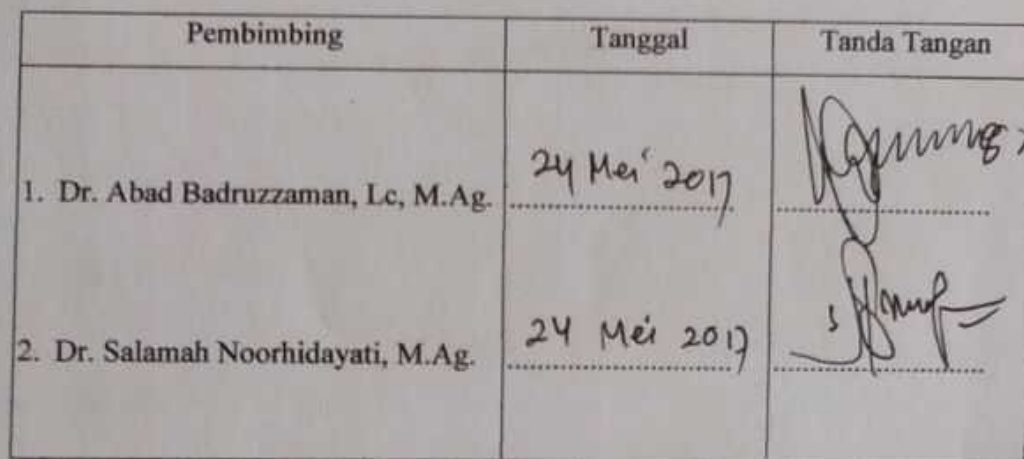 Pembimbing Tanggal Tanda Tangan
1. Dr. Abad Badruzzaman, Lc, M.Ag. 24 Mei 2017
2. Dr. Salamah Noorhidayati, M.Ag. 24 Mei 2017